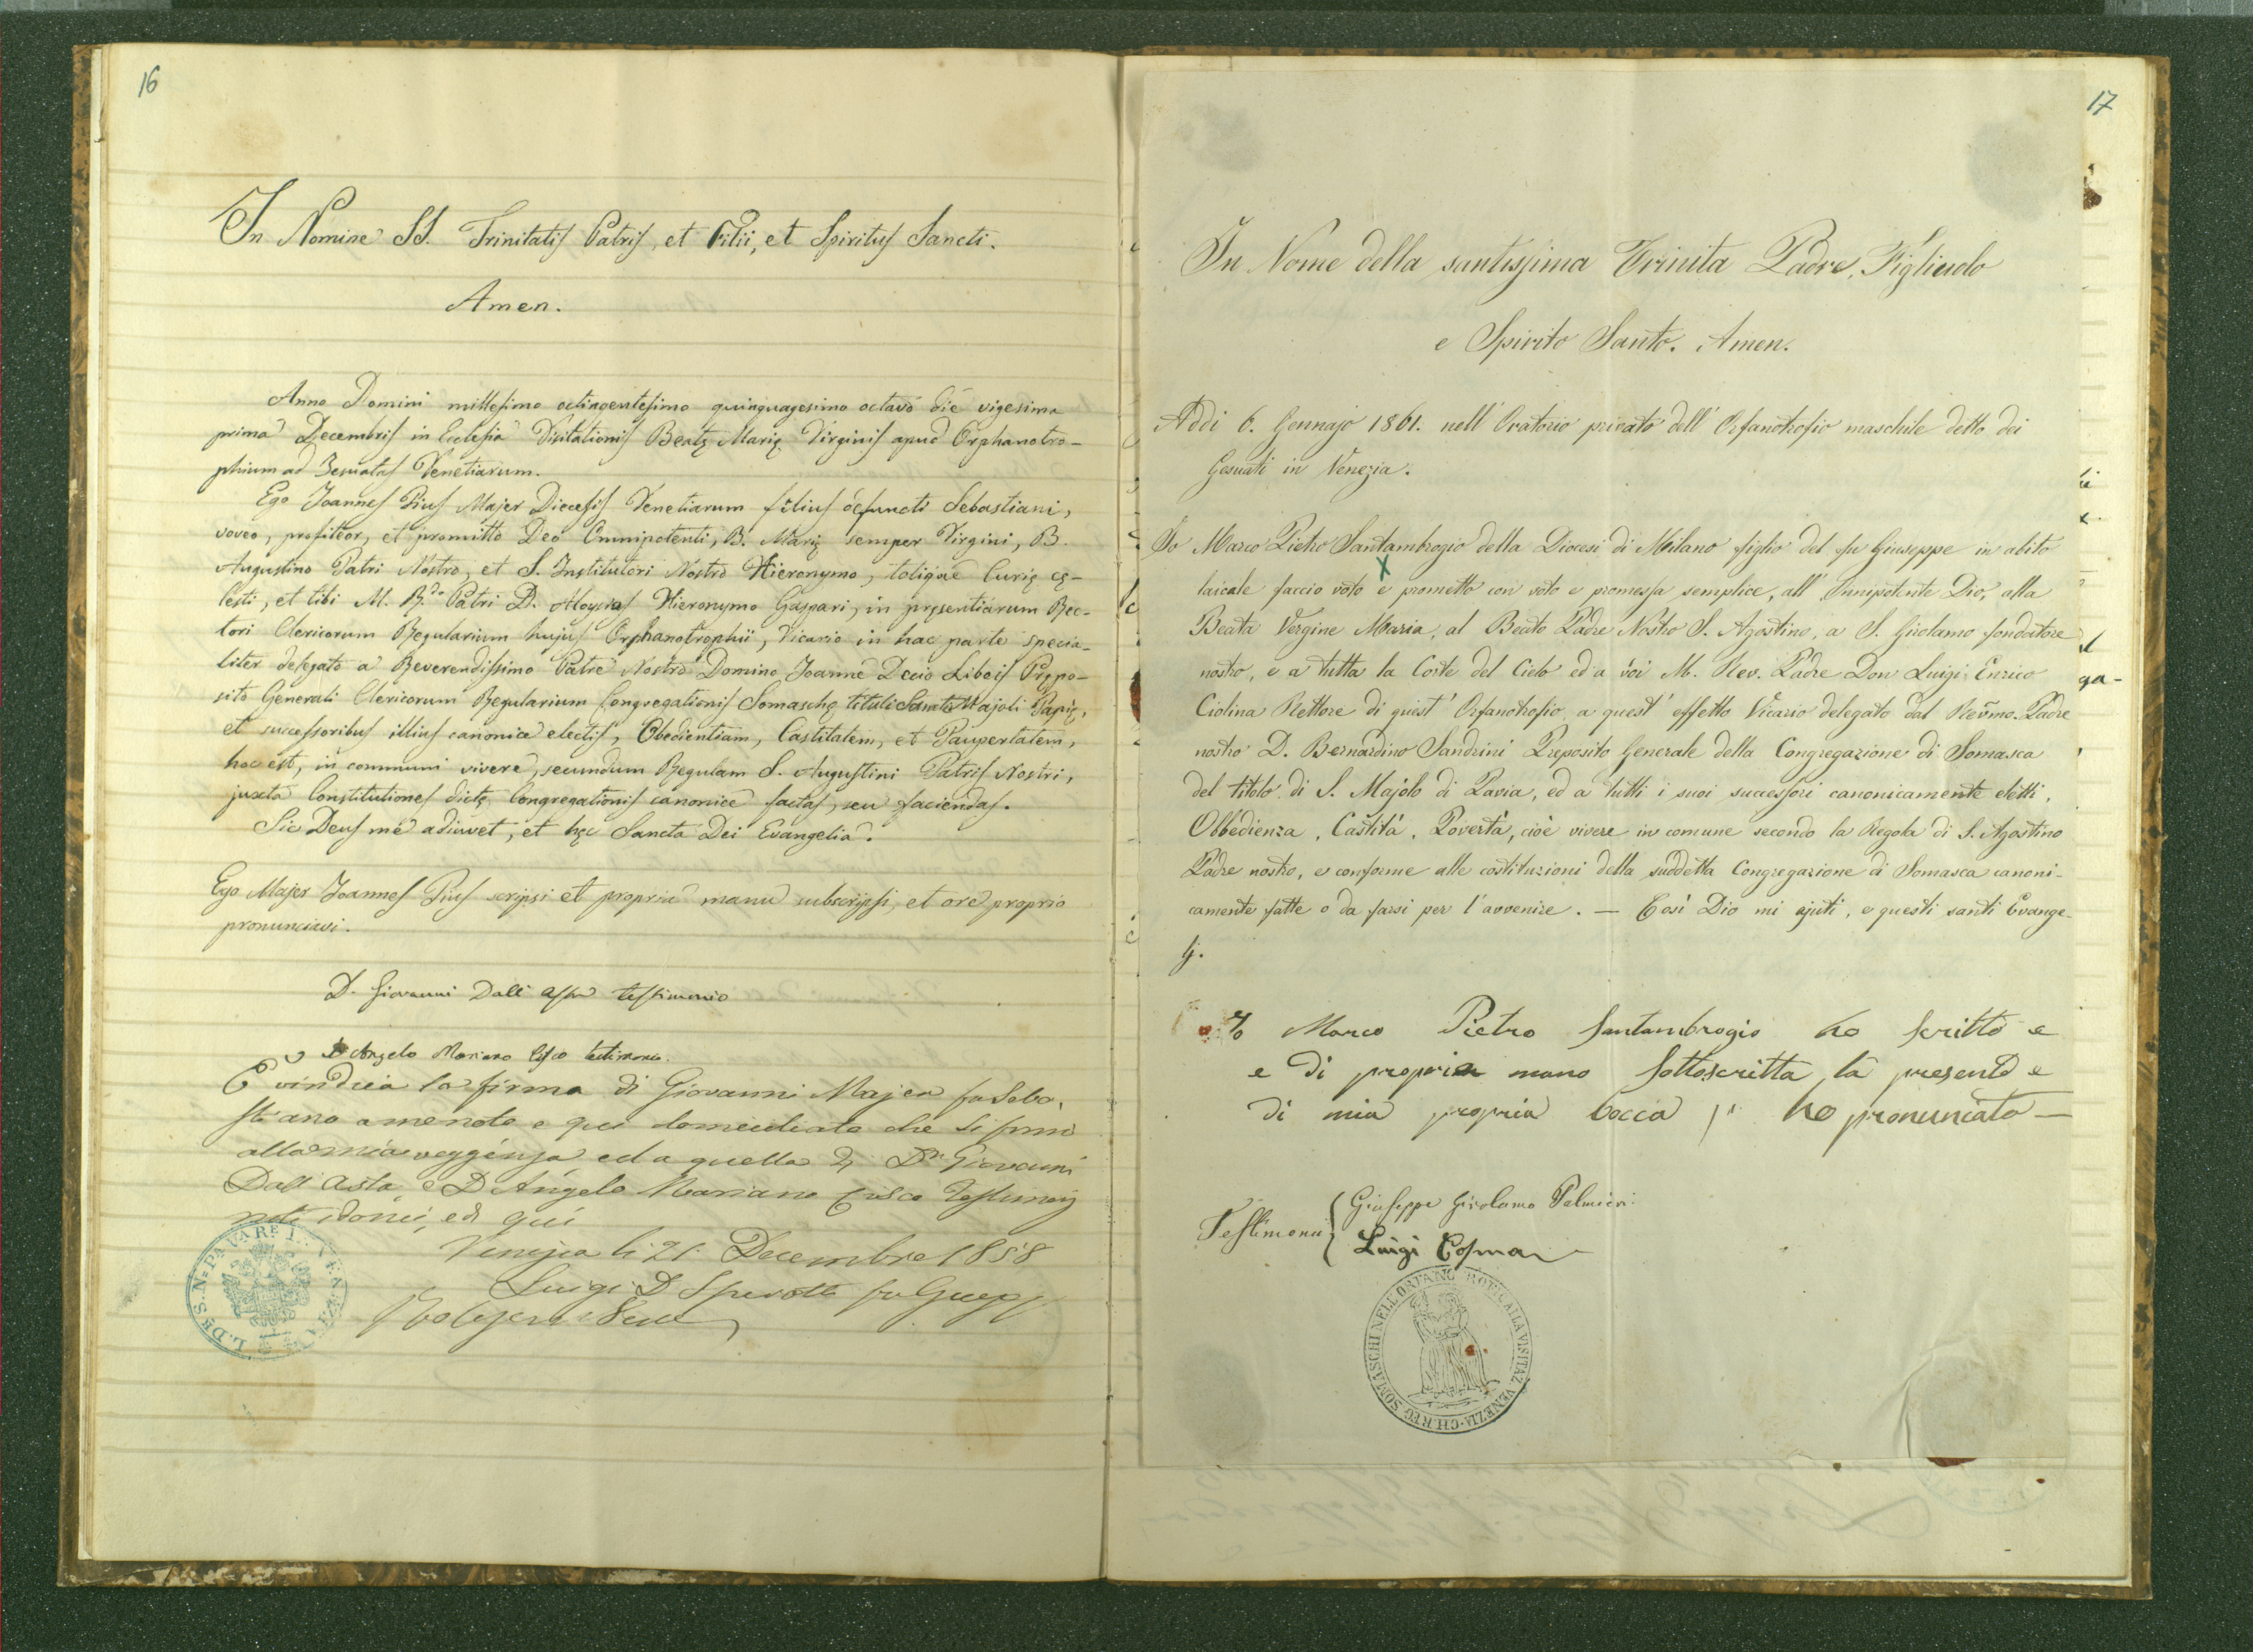 16
In Nomine SS. Trinitatis Patris, et Filii, et Spiritus Sancti.
Amen.
Anno Domini millesimo octingentesimo quinquagesimo octavo die vigesima
prima Decembris in Ecclesia Visitationis Beatę Marię Virginis apud Orphanotro-
phium ad Jesuatas Venetiarum.
Ego Joannes Pius Majer Diecesis Venetiarum filius defuncti Sebastiani,
voveo, profiteor, et promitto Deo Omnipotenti, B. Marię semper Virgini, B.
Augustino Patri Nostro, et S. Institutori Nostro Hieronymo, totique Curię cę-
lesti, et tibi M. R.do Patri D. Aloysio Hieronymo Gaspari, in pręsentiarum Rec-
tori Clericorum Regularium hujus Orphanotrophii, Vicario in hac parte specia-
liter delegato a Reverendissimo Patre Nostro Domino Joanne Decio Libois Prępo-
sito Generali Clericorum Regularium Congregationis Somaschę tituli Sancti Majoli Papię,
et successoribus illius canonice electis, Obedientiam, Castitatem, et Paupertatem,
hoc est, in communi vivere, secundum Regulam S. Augustini Patris Nostri,
juxta Constitutiones dictę Congregationis canonice factas, seu faciendas.
Sic Deus me adiuvet, et hęc Sancta Dei Evangelia.
Ego Majer Joannes Pius scripsi et propria manu subscripsi, et ore proprio
pronunciavi.
D. Giovanni Dall'Asta testimonio
D Angelo Mariano Cisco testimonio.
È vindica la firma di Giovanni Majer fu Seba,
stiano a me noto e qui domiciliato che si firmò
alla mia veggenza ed a quella di Dn Giovanni
Dall'Asta, e D Angelo Mariano Cisco Testimonj
noti idonei, ed qui
Venezia li 21. Decembre 1858
Luigi D
17
In Nome della santissima Trinita Padre, Figliuolo
e Spirito Santo. Amen.
Addi 6. Gennajo 1861. nell' Oratorio privato dell' Orfanotrofio maschile detto dei
Gesuati in Venezia.
Io Marco Pietro Santambrogio della Diocesi di Milano figlio del fu Giuseppe in abito
x
laicale faccio voto e prometto con voto e promessa semplice, all' Onnipotente Dio, alla
Beata Vergine Maria, al Beato Padre Nostro S. Agostino, a S. Girolamo fondatore
nostro, e a tutta la Corte del Cielo ed a voi M. Rev. Padre Don Luigi Enrico
Ciolina Rettore di quest' Orfanotrofio a quest' effetto Vicario delegato dal Revmo. Padre
nostro D. Bernardino Sandrini Preposito Generale della Congregazione di Somasca
del titolo di S. Majolo di Pavia, ed a tutti i suoi successori canonicamente eletti,
Obbedienza, Castità, Povertà, cioè vivere in comune secondo la Regola di S. Agostino
Padre nostro, e conforme alle costituzioni della suddetta Congregazione di Somasca canoni-
camente fatte o da farsi per l'avvenire. — Così Dio mi ajuti, e questi santi Evange-
lj.
Io Marco Pietro Santambrogio ho scritto e
e di propria mano sottoscritta la presente e
di mia propria bocca ho pronunciato —
Testimonii
Giuseppe Girolamo Palmieri.
Luigi Cosma
CH.REG SOMASCHI NELL'ORFANOTROF. ALLA VISITAZ. VENEZIA